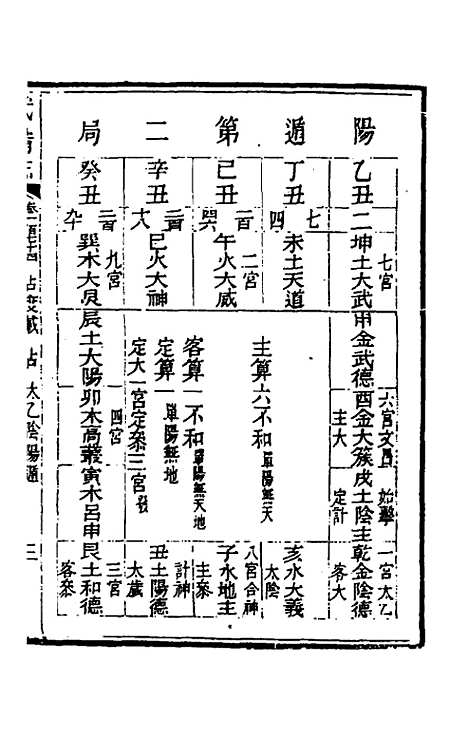 陽遁第二局
乙丑
二
丁丑
七
四
己丑
百
辛丑
癸丑
七宮
坤土大武申金武德酉金大簇戌土陰主乾金陰德
六宮 文昌 始擊 一宮 太乙
主大 定計 客大
未土天道
主算六不和單陽無天
亥水大義
太陰
二宮
午火大威
客算一不和單陽無天地
八宮合神
子水地主
主參
巳火大神
定算一單陽無地
定大一宮定參三宮發
計神
丑土陽德
太歲
九宮
四宮
三宮
巽木大炅辰土太陽卯木高叢寅木呂申艮土和德
客參
占度載 占 太乙陰陽遁
三